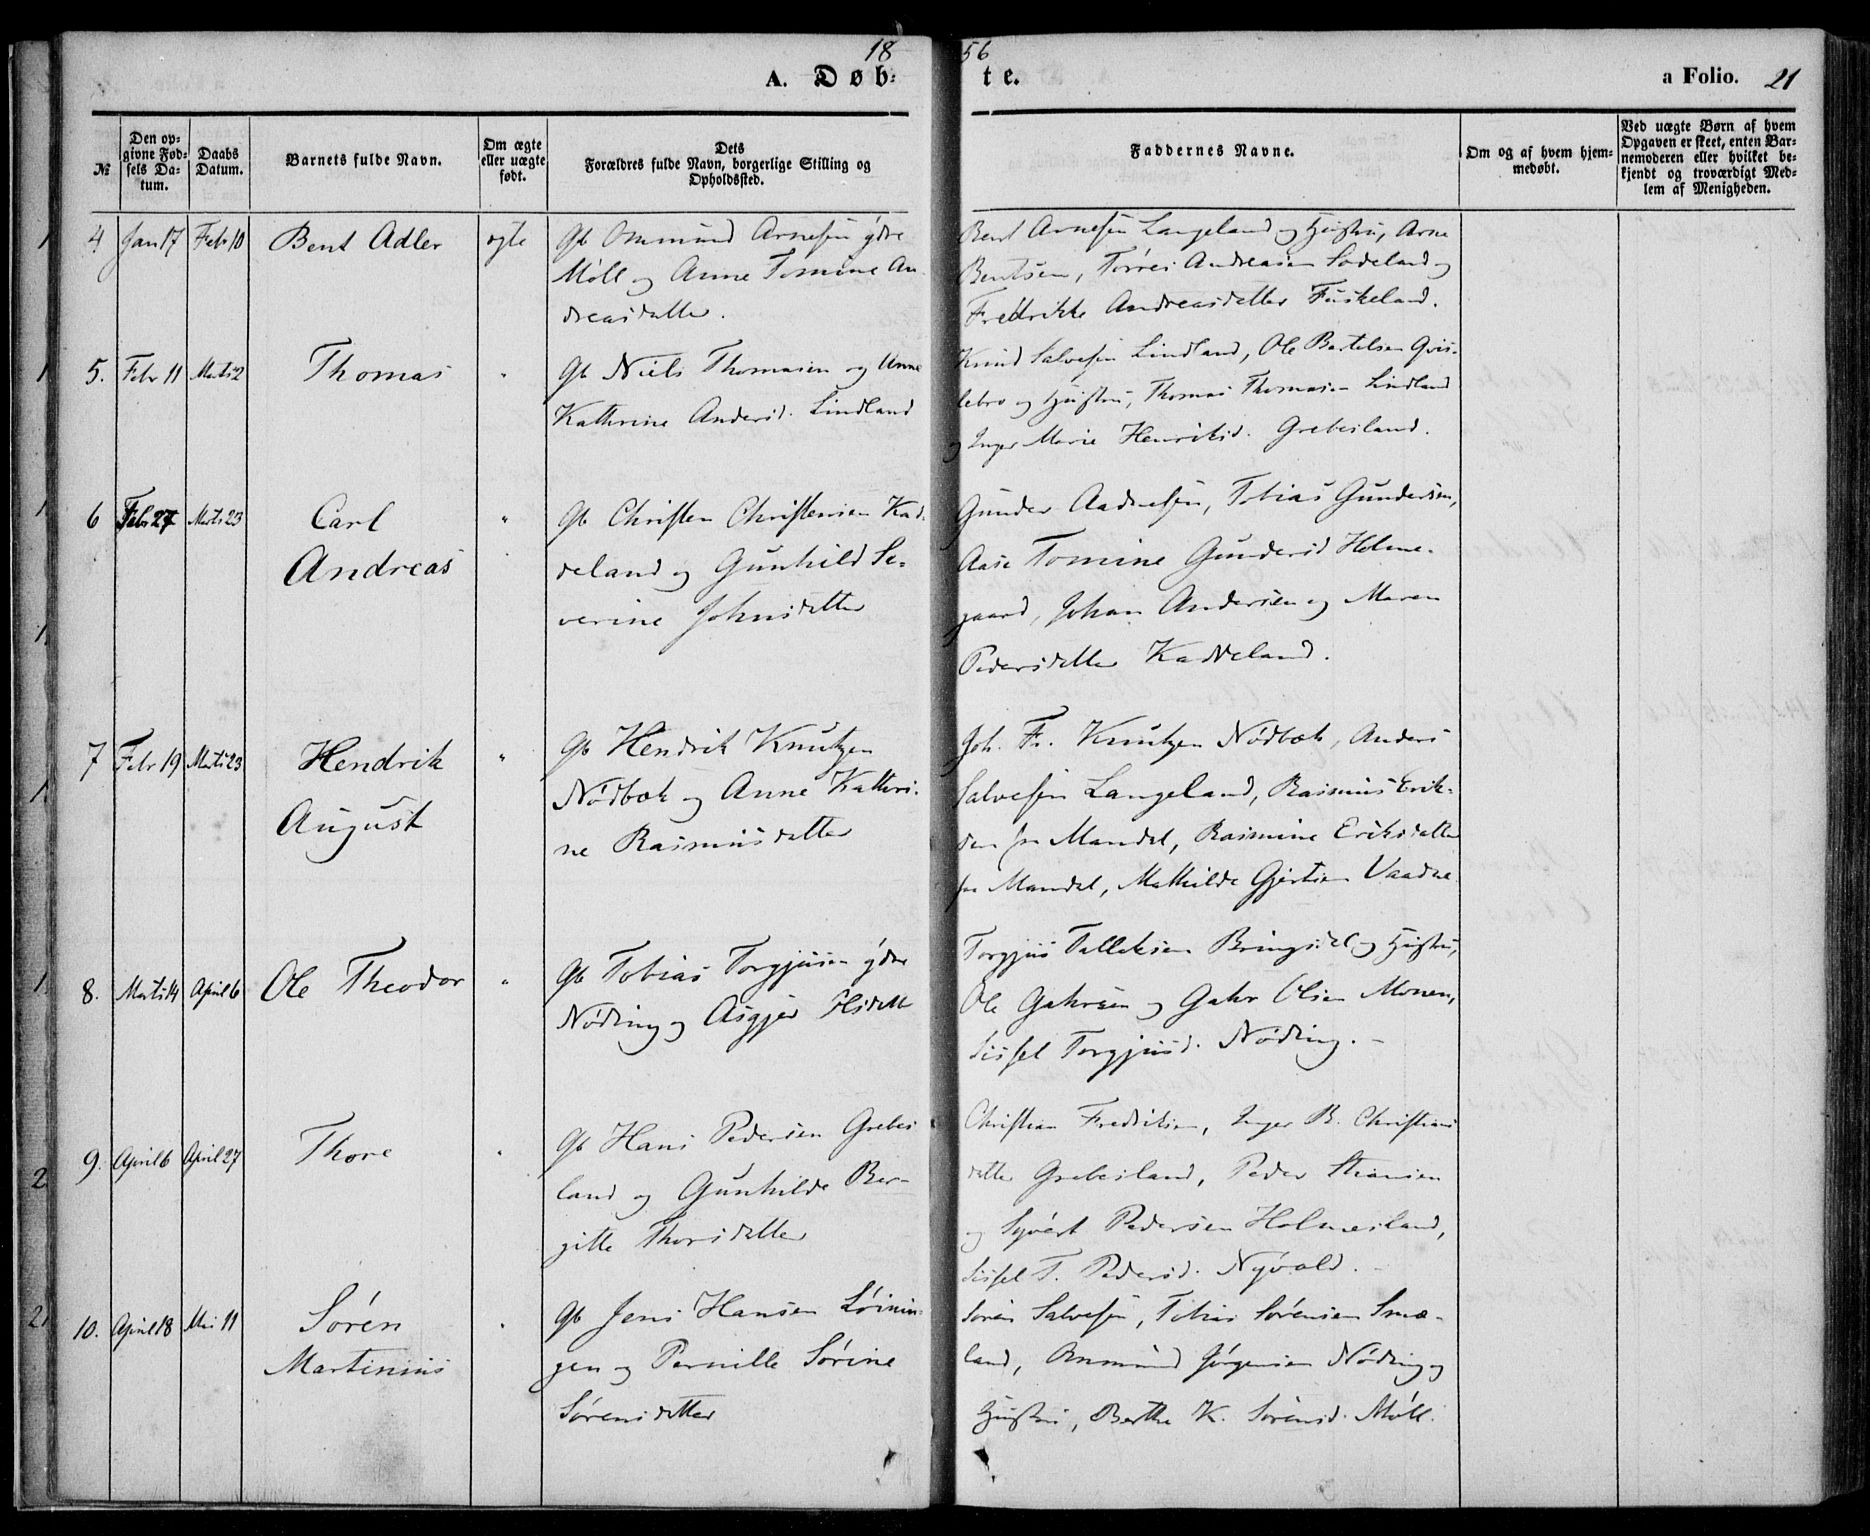 1856
A. Døbte.
a Folio. 21
№
Den op-
givne Fød-
sels Da-
tum.
Daabs
Datum.
Barnets fulde Navn.
Om ægte
eller uægte
født.
Dets
Forældres fulde Navn, borgerlige Stilling og
Opholdssted.
Faddernes Navne.
Om og af hvem hjem-
medøbt.
Ved uægte Børn af hvem
Opgaven er skeet, enten Bar-
nemoderen eller hvilket be-
kjendt og troværdigt Med-
lem af Menigheden.
4 Jan 17 Febr 10 Bent Adler ægte Gb Ommund Arnesen ydre
Møll og Anne Tomine An-
dreasdatter.
Bent Arnesen Langeland og Hustru, Arne
Bentsen, Tørres Andreasen Sodeland og
Fredrikke Andreasdatter Fuskeland.
5. Febr 11 Marts 2 Thomas " Gb Niels Thomasen og Anne
Kathrine Andersd. Lindland
Knud Salvesen Lindland, Ole Bertelsen Qvis-
lebro og Hustru, Thomas Thomasen Lindland
og Inger Marie Henriksd. Grebesland.
6 Febr 27 Marts 23 Carl
Andreas
" Gb Christen Christensen Kad-
deland og Gunhild Se-
verine Johnsdatter
Gunder Aadnesen, Tobias Gundersen,
Aase Tomine Gundersd Holme-
gaard, Johan Andersen og Maren
Pedersdatter Kaddeland.
7 Febr 19 Marts 23 Hendrik
August
" Gb Hendrik Knutzen
Nødbæk og Anne Kathri-
ne Rasmusdatter
Joh. Fr. Knutzen Nødbæk, Anders
Salvesen Langeland, Rasmus Erik-
sen fra Mandal, Rasmine Eriksdatter
fra Mandal, Mathilde Gjertsen Vaadne
8. Marts 14 April 6 Ole Theodor " Gb Tobias Torgjusen ydre
Nøding og Asgjer Olsdatt
Torgjus Tallaksen Bringsdal og Hustru,
Ole Gahrsen og Gahr Olsen Monen,
Sissel Torgjusd. Nøding. –
9. April 6 April 27 Thore " Gb Hans Pedersen Grebes
land og Gunhilde Ber-
gitte Thorsdatter
Christian Fredriksen, Inger B. Christians
datter Grebesland, Peder Stiansen
og Syvert Pedersen Holmesland,
Sissel T. Pedersd. Nyvold. –
10. April 18 Mai 11 Søren
Martinius
" Gb Jens Hansen Løinin-
gen og Pernille Sørine
Sørensdatter
Søren Salvesen, Tobias Sørensen Smæ-
land, Anmund Jørgensen Nøding og
Hustru, Berthe K. Sørensd. Møll.